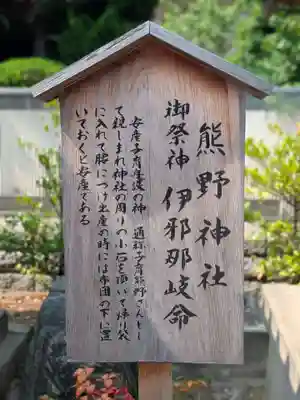 熊野神社
御祭神 伊邪那岐命
安産子育産後の神 通称子育熊野さんとし
て親しまれ神社の周りの小石を頂いて帰り袋
に入れて腰につけ出産の時には布団の下に置
いておくと安産である